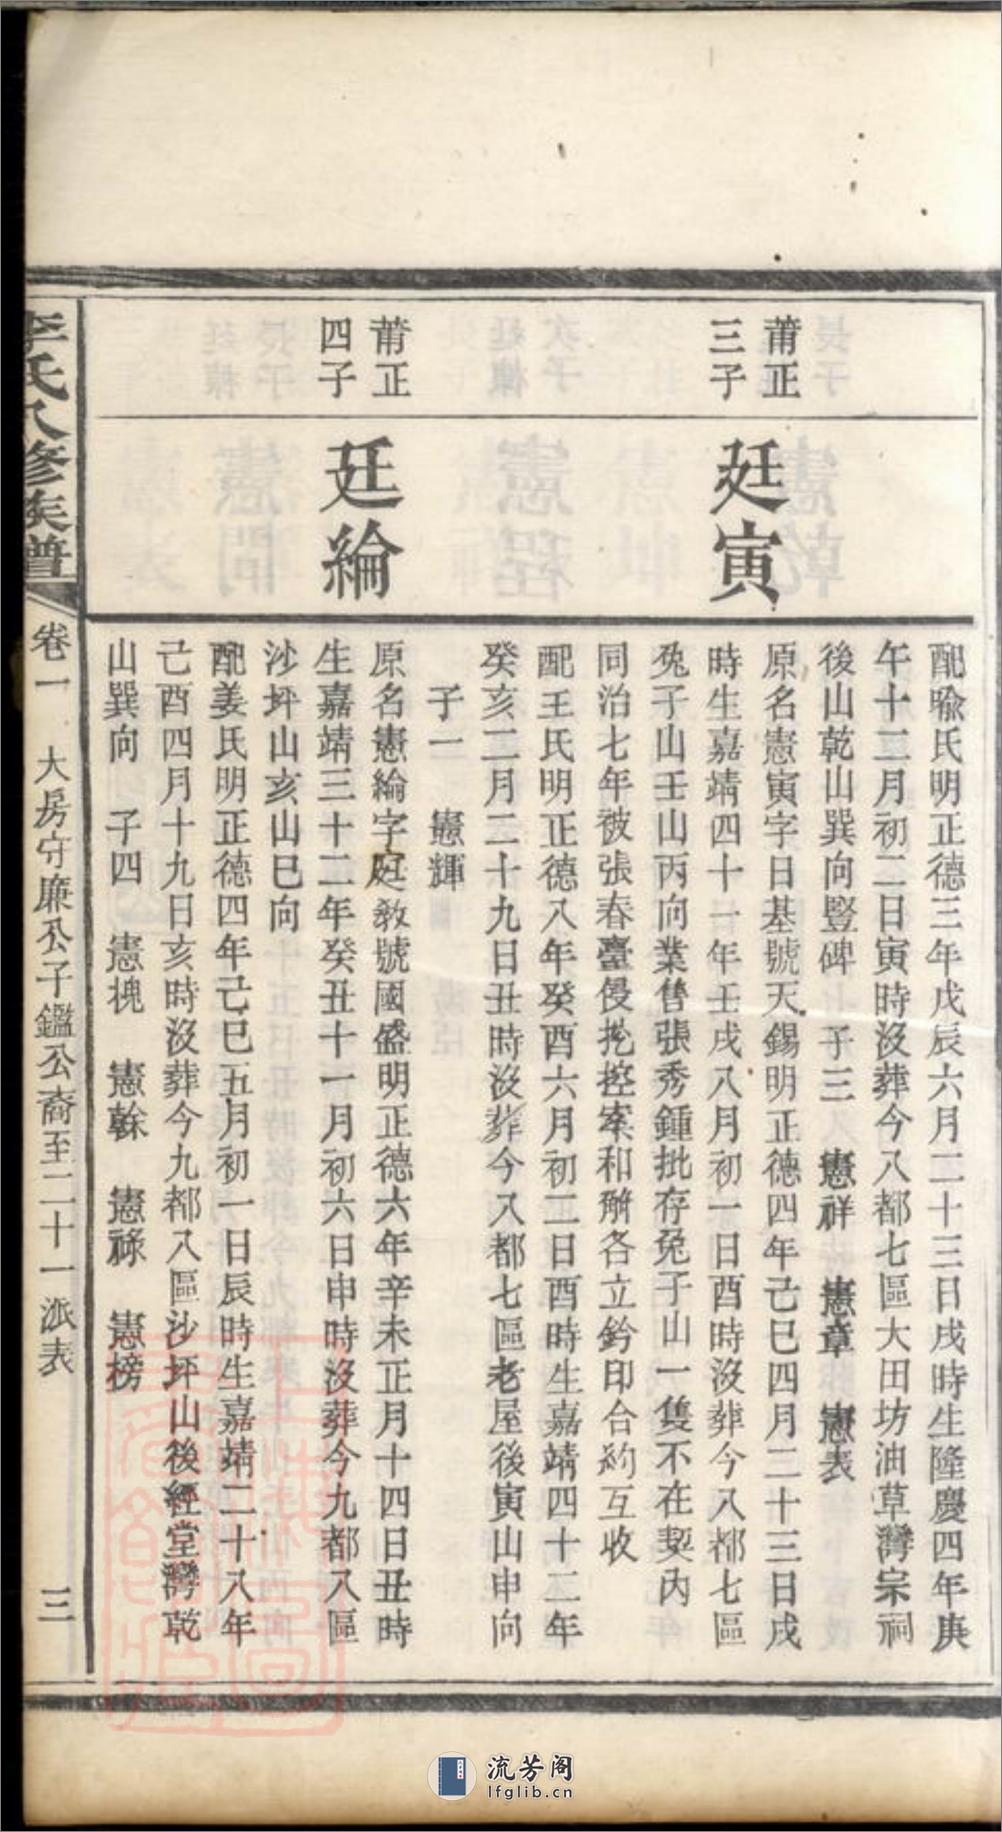 配喩氏明正德三年戊辰六月二十三日戌時生隆慶四年庚
午十二月初二日寅時沒葬今八都七區大田坊油草灣宗祠
後山乾山巽向豎碑　子三　憲祥　憲章　憲表
莆正
三子
廷寅
原名憲寅字日基號天錫明正德四年己巳四月二十三日戌
時生嘉靖四十一年壬戌八月初一日酉時沒葬今八都七區
兔子山壬山丙向業售張秀鍾批存兔子山一隻不在契內
同治七年被張春臺侵挖控案和解各立鈐印合約互收
配王氏明正德八年癸酉六月初二日酉時生嘉靖四十二年
癸亥二月二十九日丑時沒葬今八都七區老屋後寅山申向
子一　憲輝
莆正
四子
廷綸
原名憲綸字廷敎號國盛明正德六年辛未正月十四日丑時
生嘉靖三十二年癸丑十一月初六日申時沒葬今九都八區
沙坪山亥山巳向
配姜氏明正德四年己巳五月初一日辰時生嘉靖二十八年
己酉四月十九日亥時沒葬今九都八區沙坪山後經堂灣乾
山巽向　子四　憲槐　憲榦　憲祿　憲榜
李氏八修族譜
卷一　大房守廉公子鑑公裔至二十一派表
三
流芳阁
lfglib.cn